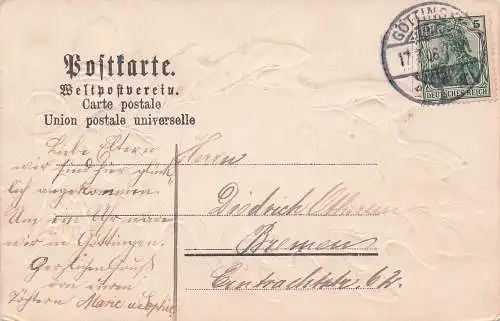 GÖTTINGEN
17. 06
5
DEUTSCHES REICH
Postkarte.
Weltpostverein.
Carte postale
Union postale universelle
Liebe Eltern
wir sind hier glück-
lich angekommen.
Um ein Uhr waren
wir in Göttingen.
Herzlichen Gruß
von euren
Töchtern Marie u. Sophie
Herrn
Diedrich
Bremen
Eintrachtstr. 62.